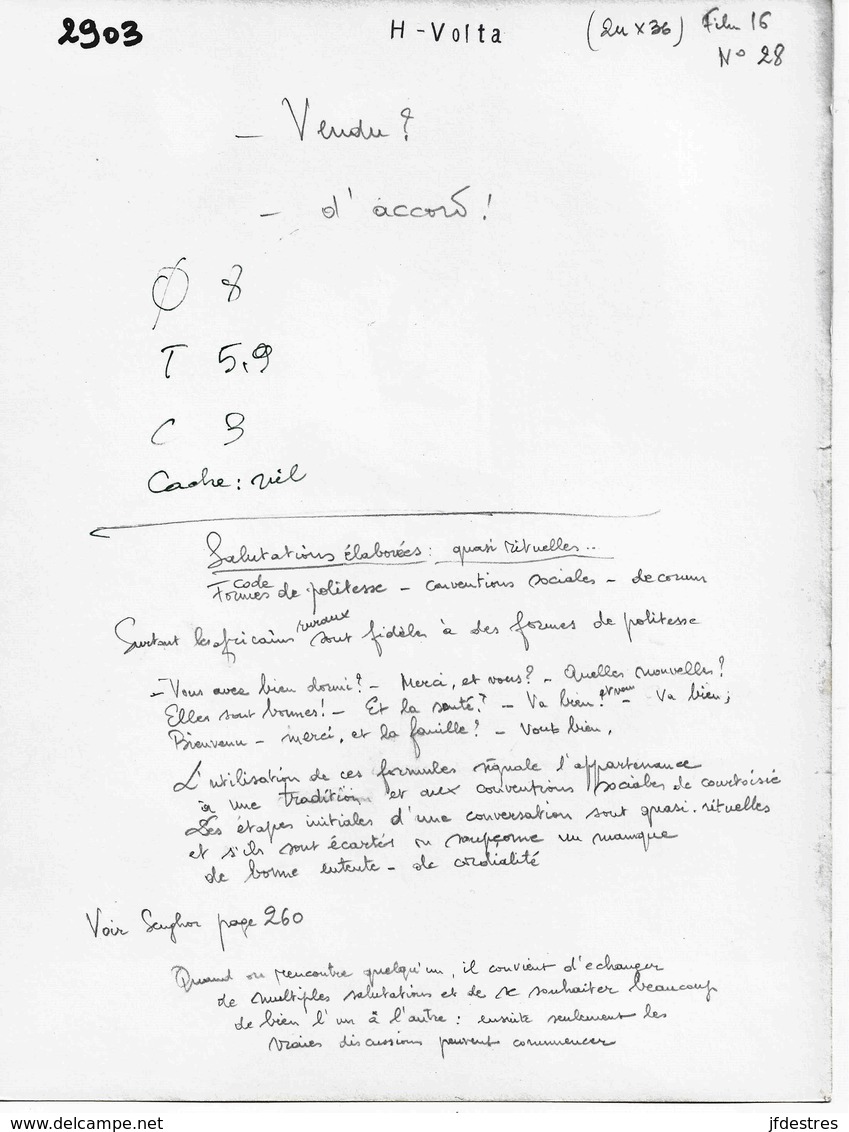 2903
H-Volta
(24 x 36) Film 16
N° 28
– Vendu ?
– d'accord !
Ø 8
T 5,9
C 3
Cache : nil
Salutations élaborées : quasi rituelles ..
code
Formes de politesse – conventions sociales – decorum
Surtout les africains ruraux sont fidèles à des formes de politesse
– Vous avez bien dormi ? – Merci, et vous ? – Quelles nouvelles ?
Elles sont bonnes ! – Et la santé ? – Va bien ! et vous – Va bien ;
Bienvenu – merci, et la famille ? – Vont bien.
L'utilisation de ces formules signale l'appartenance
à une tradition et aux conventions sociales de courtoisie
Les étapes initiales d'une conversation sont quasi-rituelles
et s'ils sont écartés on soupçonne un manque
de bonne entente – de cordialité
Voir Senghor page 260
Quand on rencontre quelqu'un, il convient d'echanger
de multiples salutations et de se souhaiter beaucoup
de bien l'un à l'autre : ensuite seulement les
vraies discussions peuvent commencer
www.delcampe.net
jfdestres